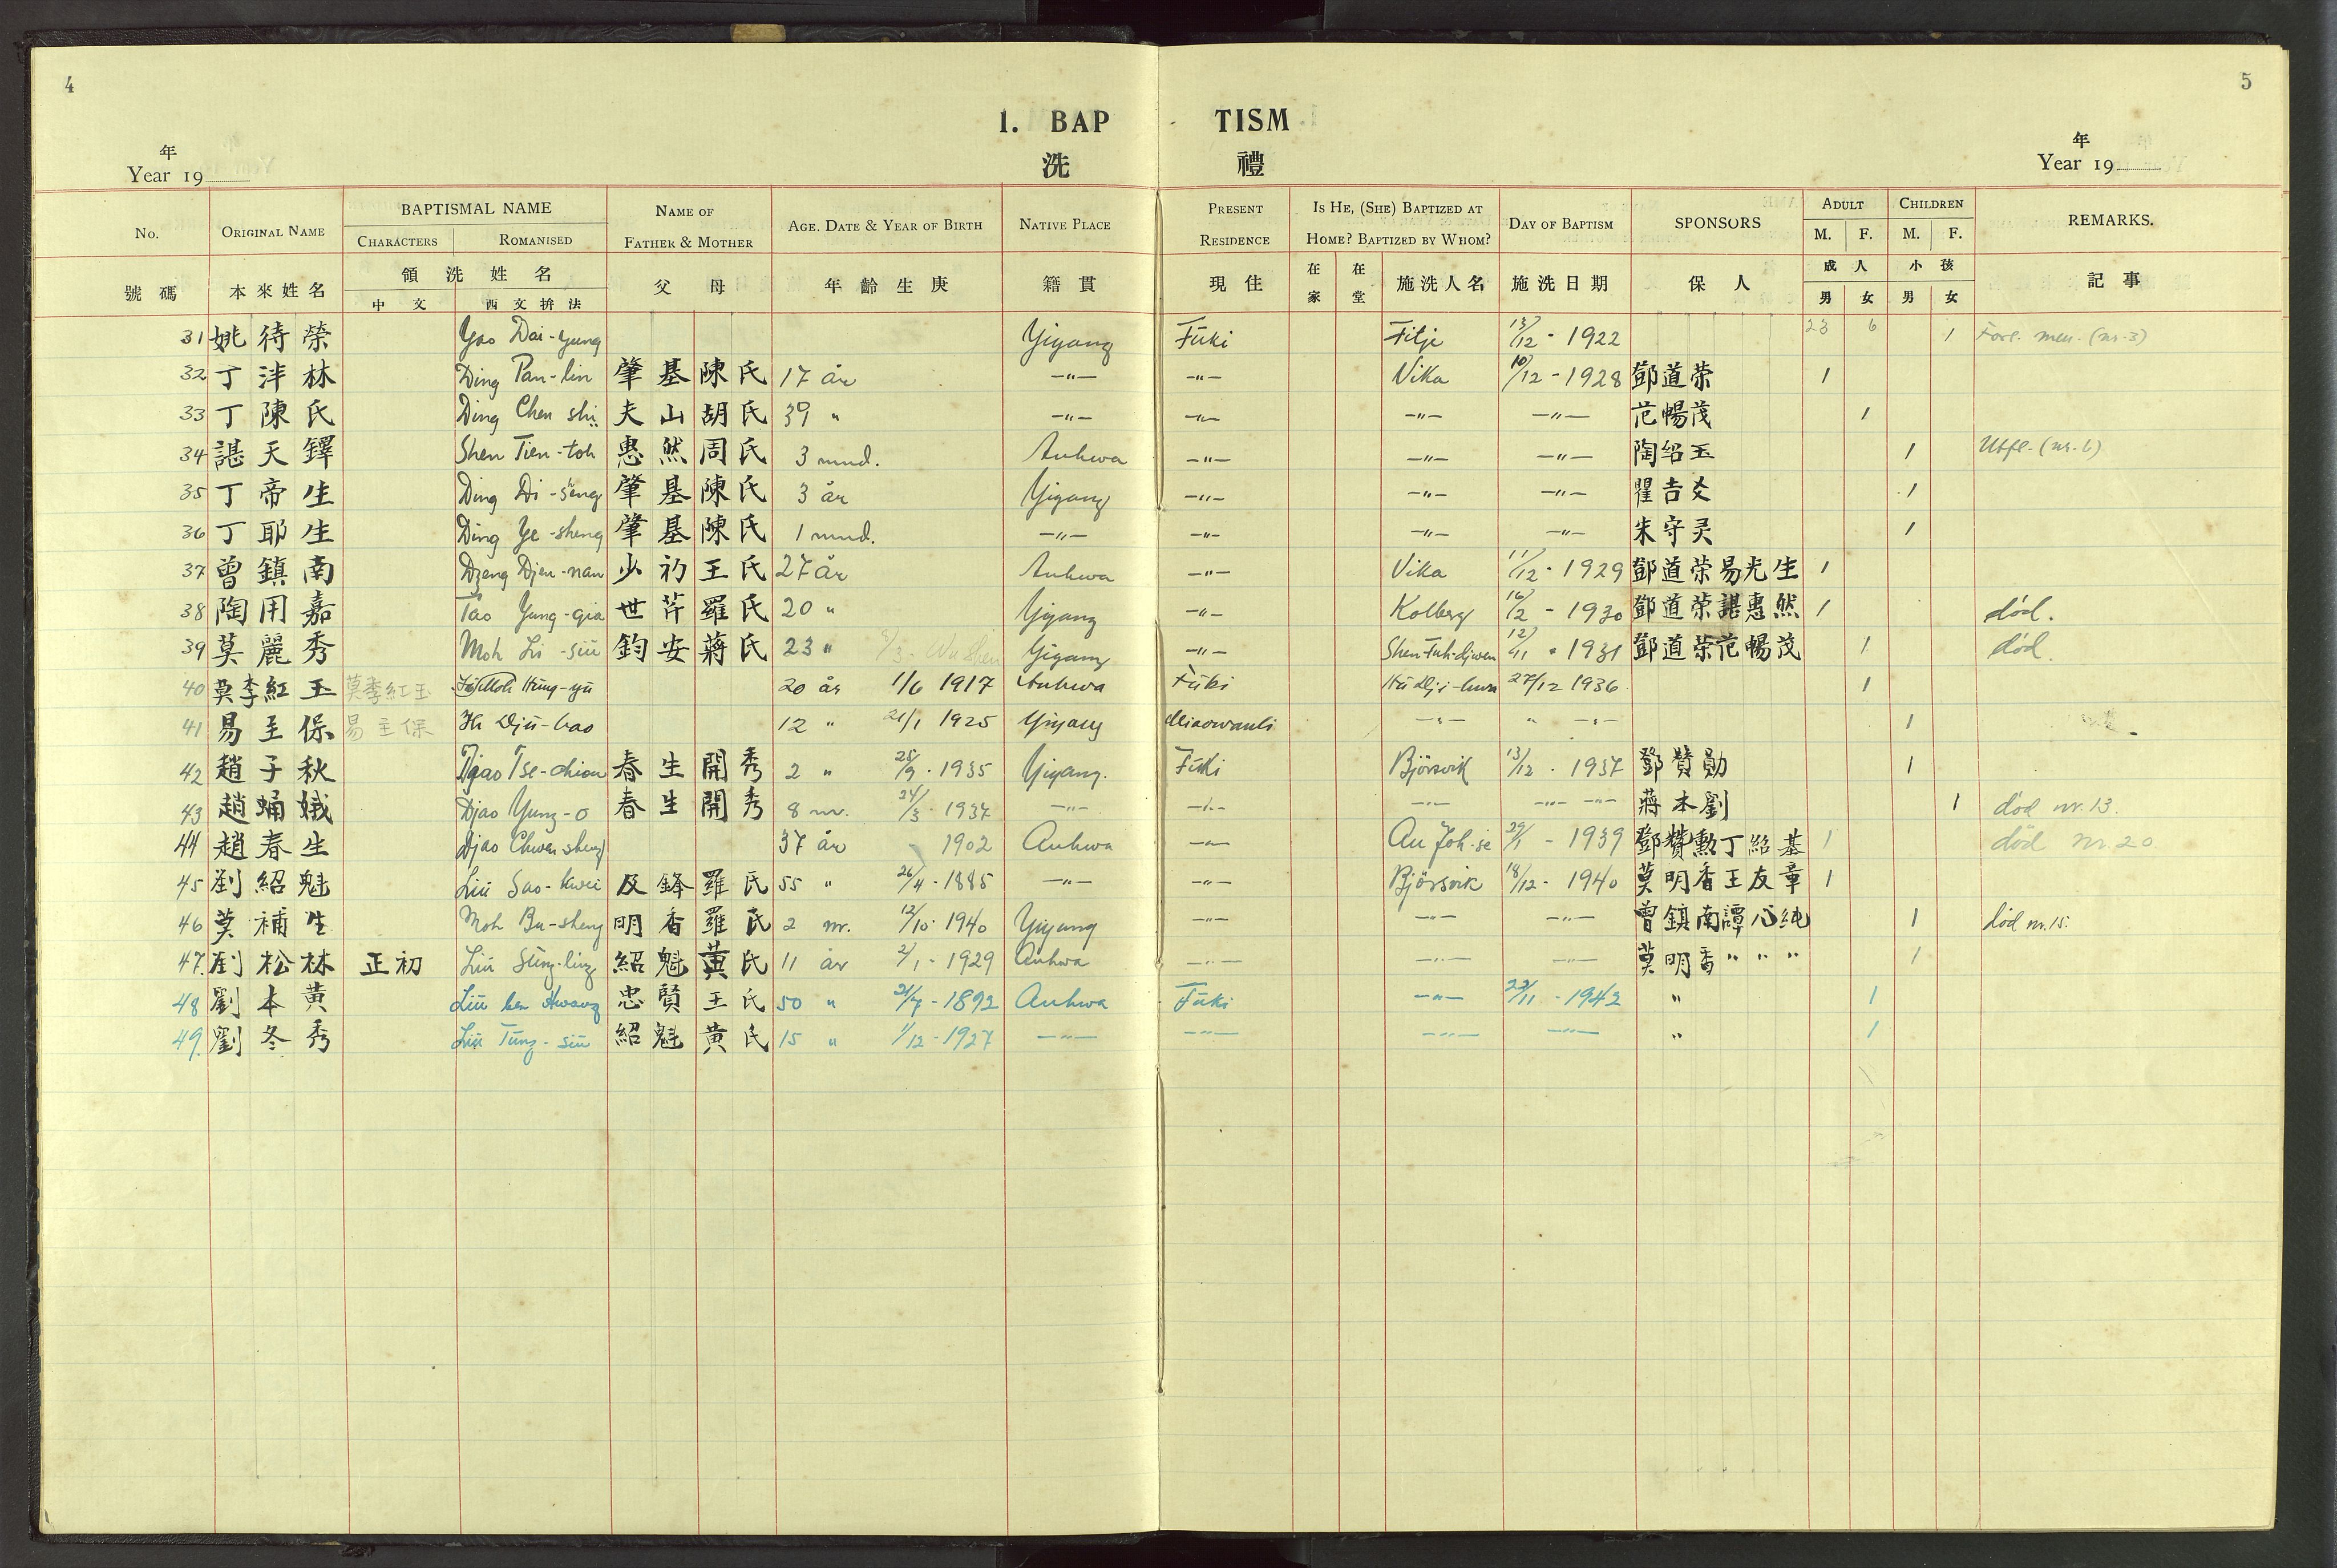 4
5
1. BAP TISM
洗 禮
年
Year 19
年
Year 19
No. ORIGINAL NAME BAPTISMAL NAME CHARACTERS ROMANISED NAME OF FATHER & MOTHER AGE. DATE & YEAR OF BIRTH NATIVE PLACE PRESENT RESIDENCE IS HE, (SHE) BAPTIZED AT HOME? BAPTIZED BY WHOM? DAY OF BAPTISM SPONSORS ADULT M. F. CHILDREN M. F. REMARKS.
號碼 本來姓名 領洗姓名 中文 西文拚法 父母 年齡生庚 籍貫 現住 在家 在堂 施洗人名 施洗日期 保人 成人 男 女 小孩 男 女 記事
31 姚待榮 Yao Dai-yung Yiyang Fuki Filje 13/12 - 1922 23 6 1 (nr. 3)
32 丁泮林 Ding Pan-lin 肇基 陳氏 17 år -"- -"- Vika 10/12 - 1928 鄧道荣 1
33 丁陳氏 Ding Chen shi 夫山 胡氏 39 " -"- -"- -"- -"- 范暢茂 1
34 諶天鐸 Shen Tien-toh 惠然 周氏 3 mnd. Anhwa -"- -"- -"- 陶绍玉 1 Utfl. (nr. 6)
35 丁帝生 Ding Di-seng 肇基 陳氏 3 år Yiyang -"- -"- -"- 瞿吉爻 1
36 丁耶生 Ding Ye-sheng 肇基 陳氏 1 mnd. -"- -"- -"- -"- 朱守灵 1
37 曾鎮南 Dzeng Djen-nan 少礿 王氏 27 år Anhwa -"- Vika 11/12 - 1929 鄧道荣易光生 1
38 陶用嘉 Tao Yung-gia 世芹 羅氏 20 " Yiyang -"- Kolberg 16/2 - 1930 鄧道荣諶惠然 1 död.
39 莫麗秀 Moh Li-siu 鈞安 蔣氏 23 " Yiyang -"- Shen Fuh-djwen 12/11 - 1931 鄧道荣范暢茂 1 död.
40 莫李紅玉 莫李紅玉 Moh Hung-yü 20 år 1/6 1917 Anhwa Fuki 27/12 1936 1
41 易主保 易主保 Ih Djü-bao 12 " 21/1 1925 Yiyang Miaowanli -"- " -"- 1
42 趙子秋 Djao Tse-chiou 春生 開秀 2 " 28/9 - 1935 Yiyang. Fuki Björsvik 13/12 - 1937 鄧贊勛 1
43 趙蛹娥 Djao Yung-o 春生 開秀 8 m. 24/3 - 1937 -"- -"- -"- -"- -"- 蔣本劉 1 död nr. 13.
44 趙春生 Djao Chwen sheng 37 år 1902 Anhwa -"- An Joh-se 29/1 - 1939 鄧贊勳丁紹基 1 död nr. 20
45 劉紹魁 Liu Sao-kwei 及鋒 羅氏 55 " 26/4 - 1885 -"- -"- Björsvik 18/12 - 1940 莫明香王友章 1
46 莫補生 Moh Bu-sheng 明香 羅氏 2 m. 12/10 1940 Yiyang -"- -"- -"- 曾鎮南譚心純 1 död nr. 15.
47. 劉松林 正初 Liu Sung-ling 紹魁 黃氏 11 år 2/1 - 1929 Anhwa -"- -"- -"- 莫明香 " " " 1
48 劉本黃 Liu ben Hwang 忠賢 王氏 50 " 21/7 - 1892 Anhwa Fuki -"- 22/11 - 1942 " 1
49. 劉冬秀 Liu Tung-siu 紹魁 黃氏 15 " 1/12 - 1927 -"- -"- -"- -"- " 1